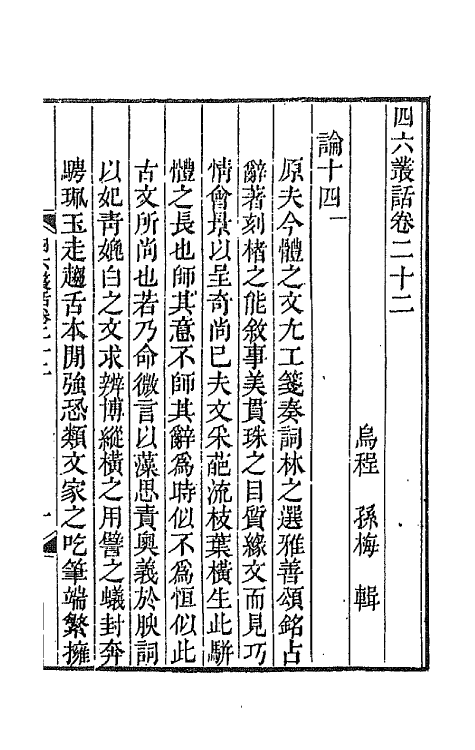 四六叢話卷二十二
烏程　孫梅　輯
論十四
原夫今體之文尤工箋奏詞林之選雅善頌銘占
辭著刻楮之能敘事美貫珠之目質緣文而見巧
情會景以呈奇尚已夫文采葩流枝葉橫生此駢
體之長也師其意不師其辭為時似不為恒似此
古文所尚也若乃命微言以藻思責奧義於腴詞
以妃青媲白之文求辨博縱橫之用譬之蟻封奔
騁珮玉走趨舌本閒強恐類文家之吃筆端繁擁
四六叢話卷二十二
一